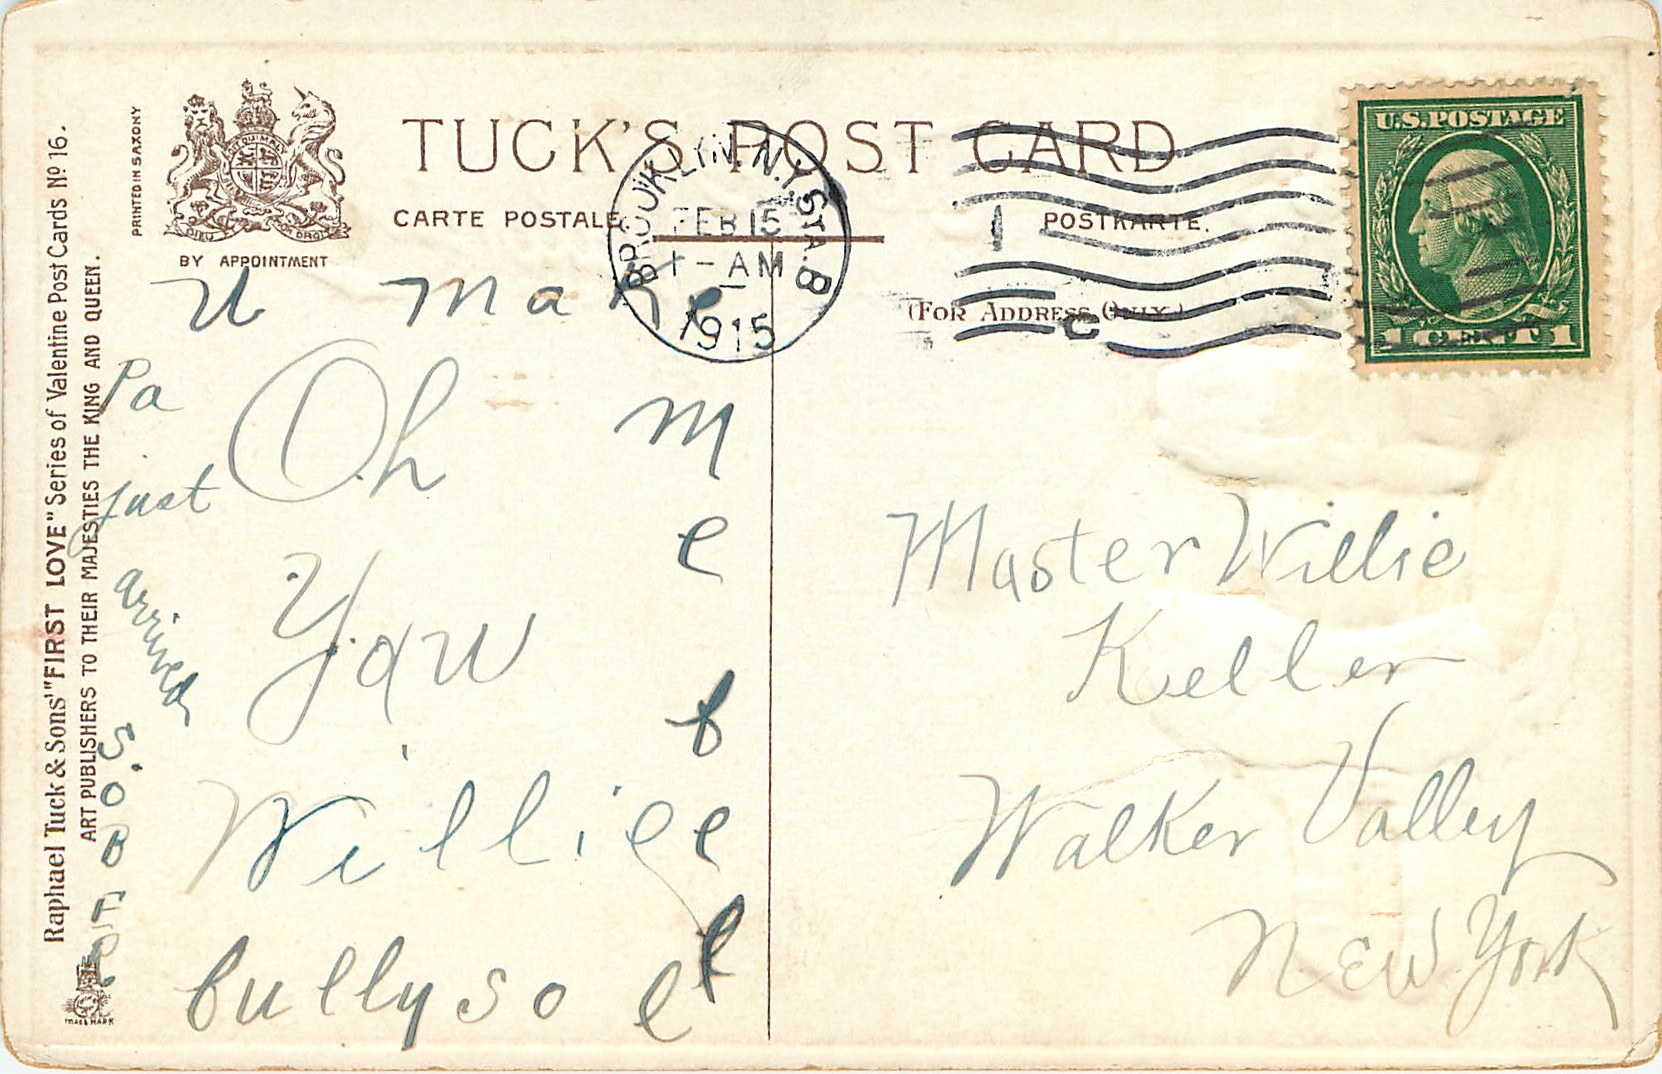 TUCK'S POST CARD
CARTE POSTALE
POSTKARTE.
(FOR ADDRESS ONLY.)
BY APPOINTMENT
PRINTED IN SAXONY
Raphael Tuck & Sons' "FIRST LOVE" Series of Valentine Post Cards No 16.
ART PUBLISHERS TO THEIR MAJESTIES THE KING AND QUEEN.
TRADE MARK
BROOKLYN, N.Y. STA. B
FEB 15
1 - AM
1915
U.S. POSTAGE
1 CENT 1
U make
me
feel
so
bully
Willie
Yaw
Oh
Pa
just
arrived
SOBER
Master Willie
Keller
Walker Valley
New York